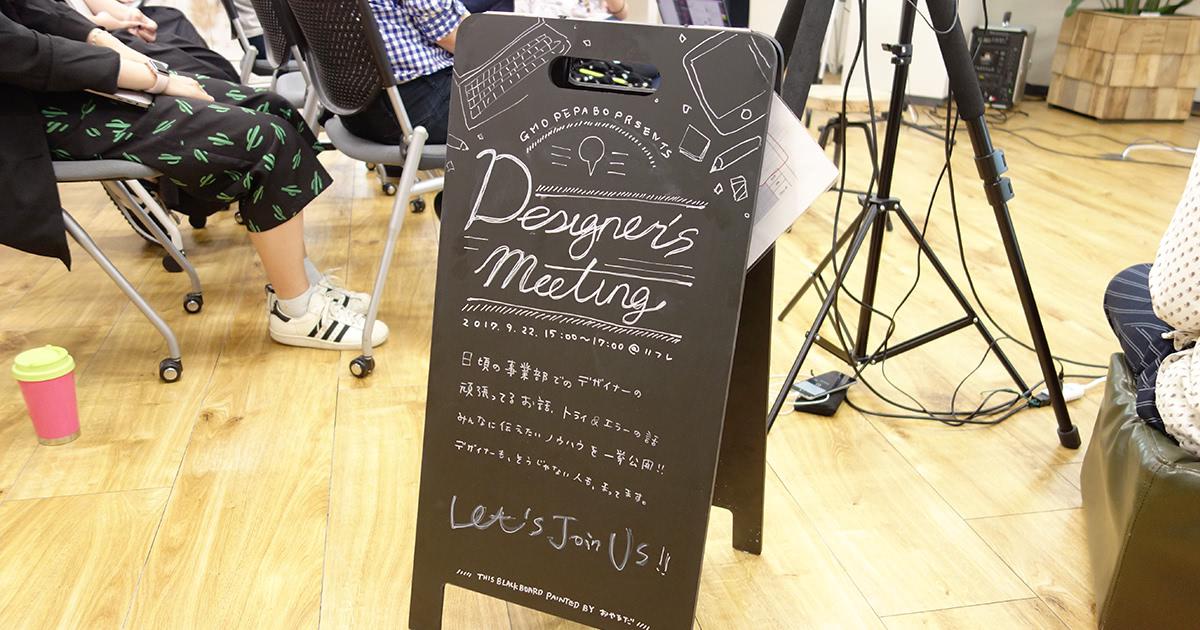 GMO PEPABO PRSENTS
Designer's
Meeting
2017. 9. 22. 15:00~17:00 @ 11フレ
日頃の事業部でのデザイナーの
頑張ってるお話、トライ&エラーの話
みんなに伝えたいノウハウを一挙公開!!
デザイナーも、そうじゃない人も、まってます。
Let's Join Us!!
THIS BLACKBOARD PAINTED BY おやまだ